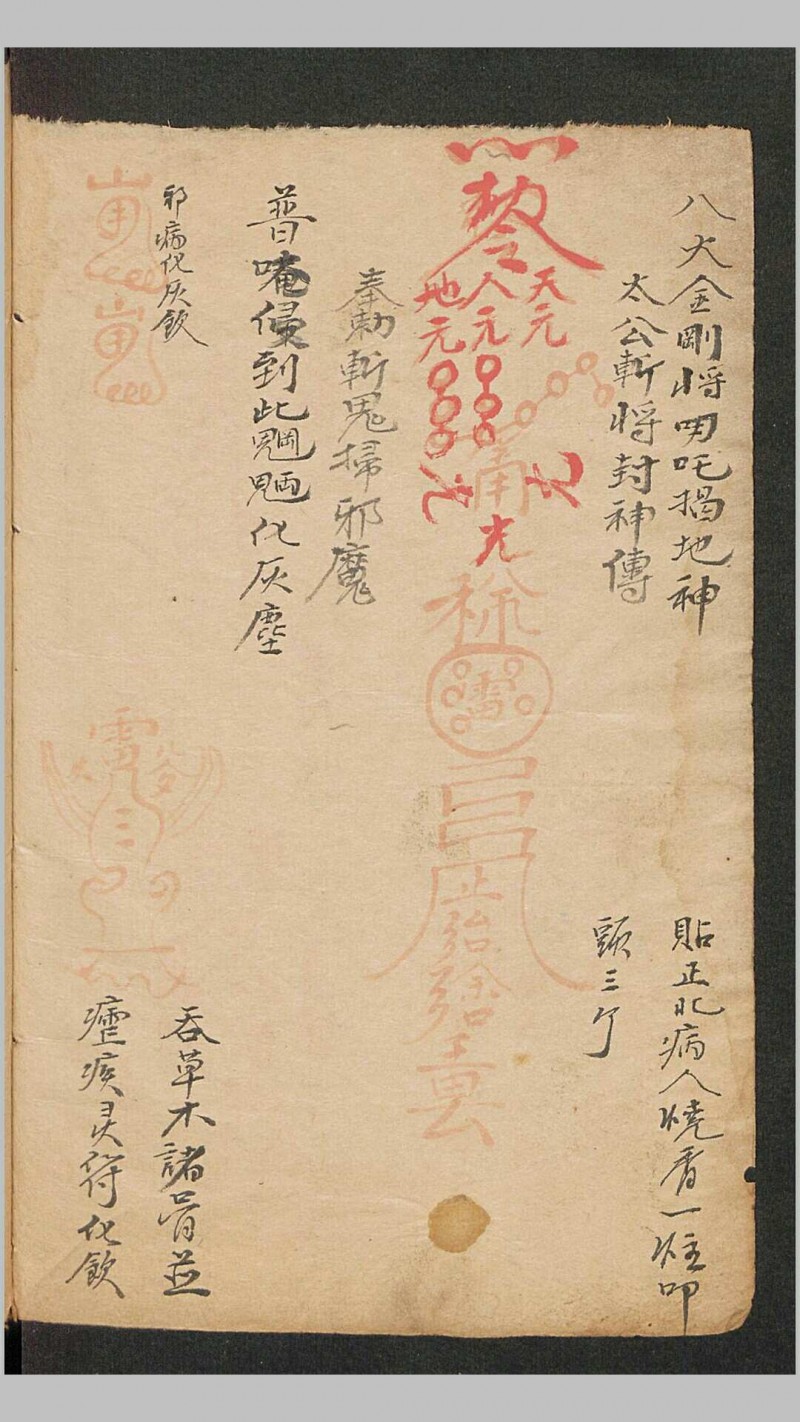 八大金剛將叨吒揭地神
太公斬將封神傳
貼正北病人燒香一炷叩
頭三个
敕令
天元
人元
地元
雷
奉勅斬鬼掃邪魔
普唵侵到此魍魎化灰塵
吞草木諸骨並
瘧疾灵符化飲
邪病化灰飲